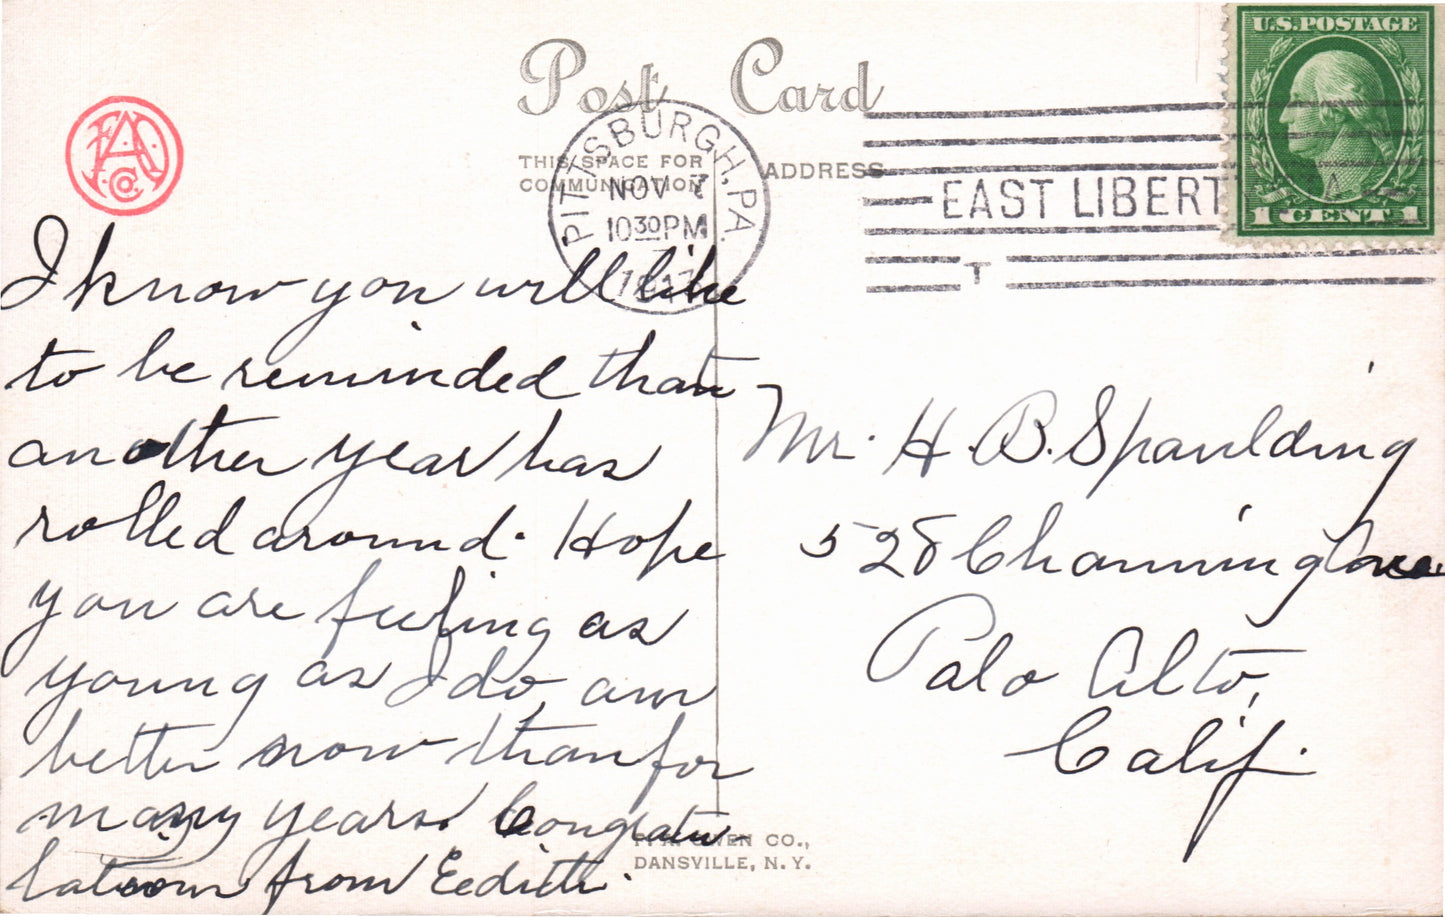 Post Card
U.S. POSTAGE
1 CENT 1
FAO Co.
THIS SPACE FOR
COMMUNICATION
ADDRESS
PITTSBURGH, PA.
NOV 7
10 30 PM
EAST LIBERT
I know you will like
to be reminded that
another year has
rolled around. Hope
you are feeling as
young as I do, am
better now than for
many years. Congratu-
lations from Eedith.
Mr. H. B. Spaulding
528 Channing Ave.
Palo Alto,
Calif.
OWEN CO.,
DANSVILLE, N.Y.